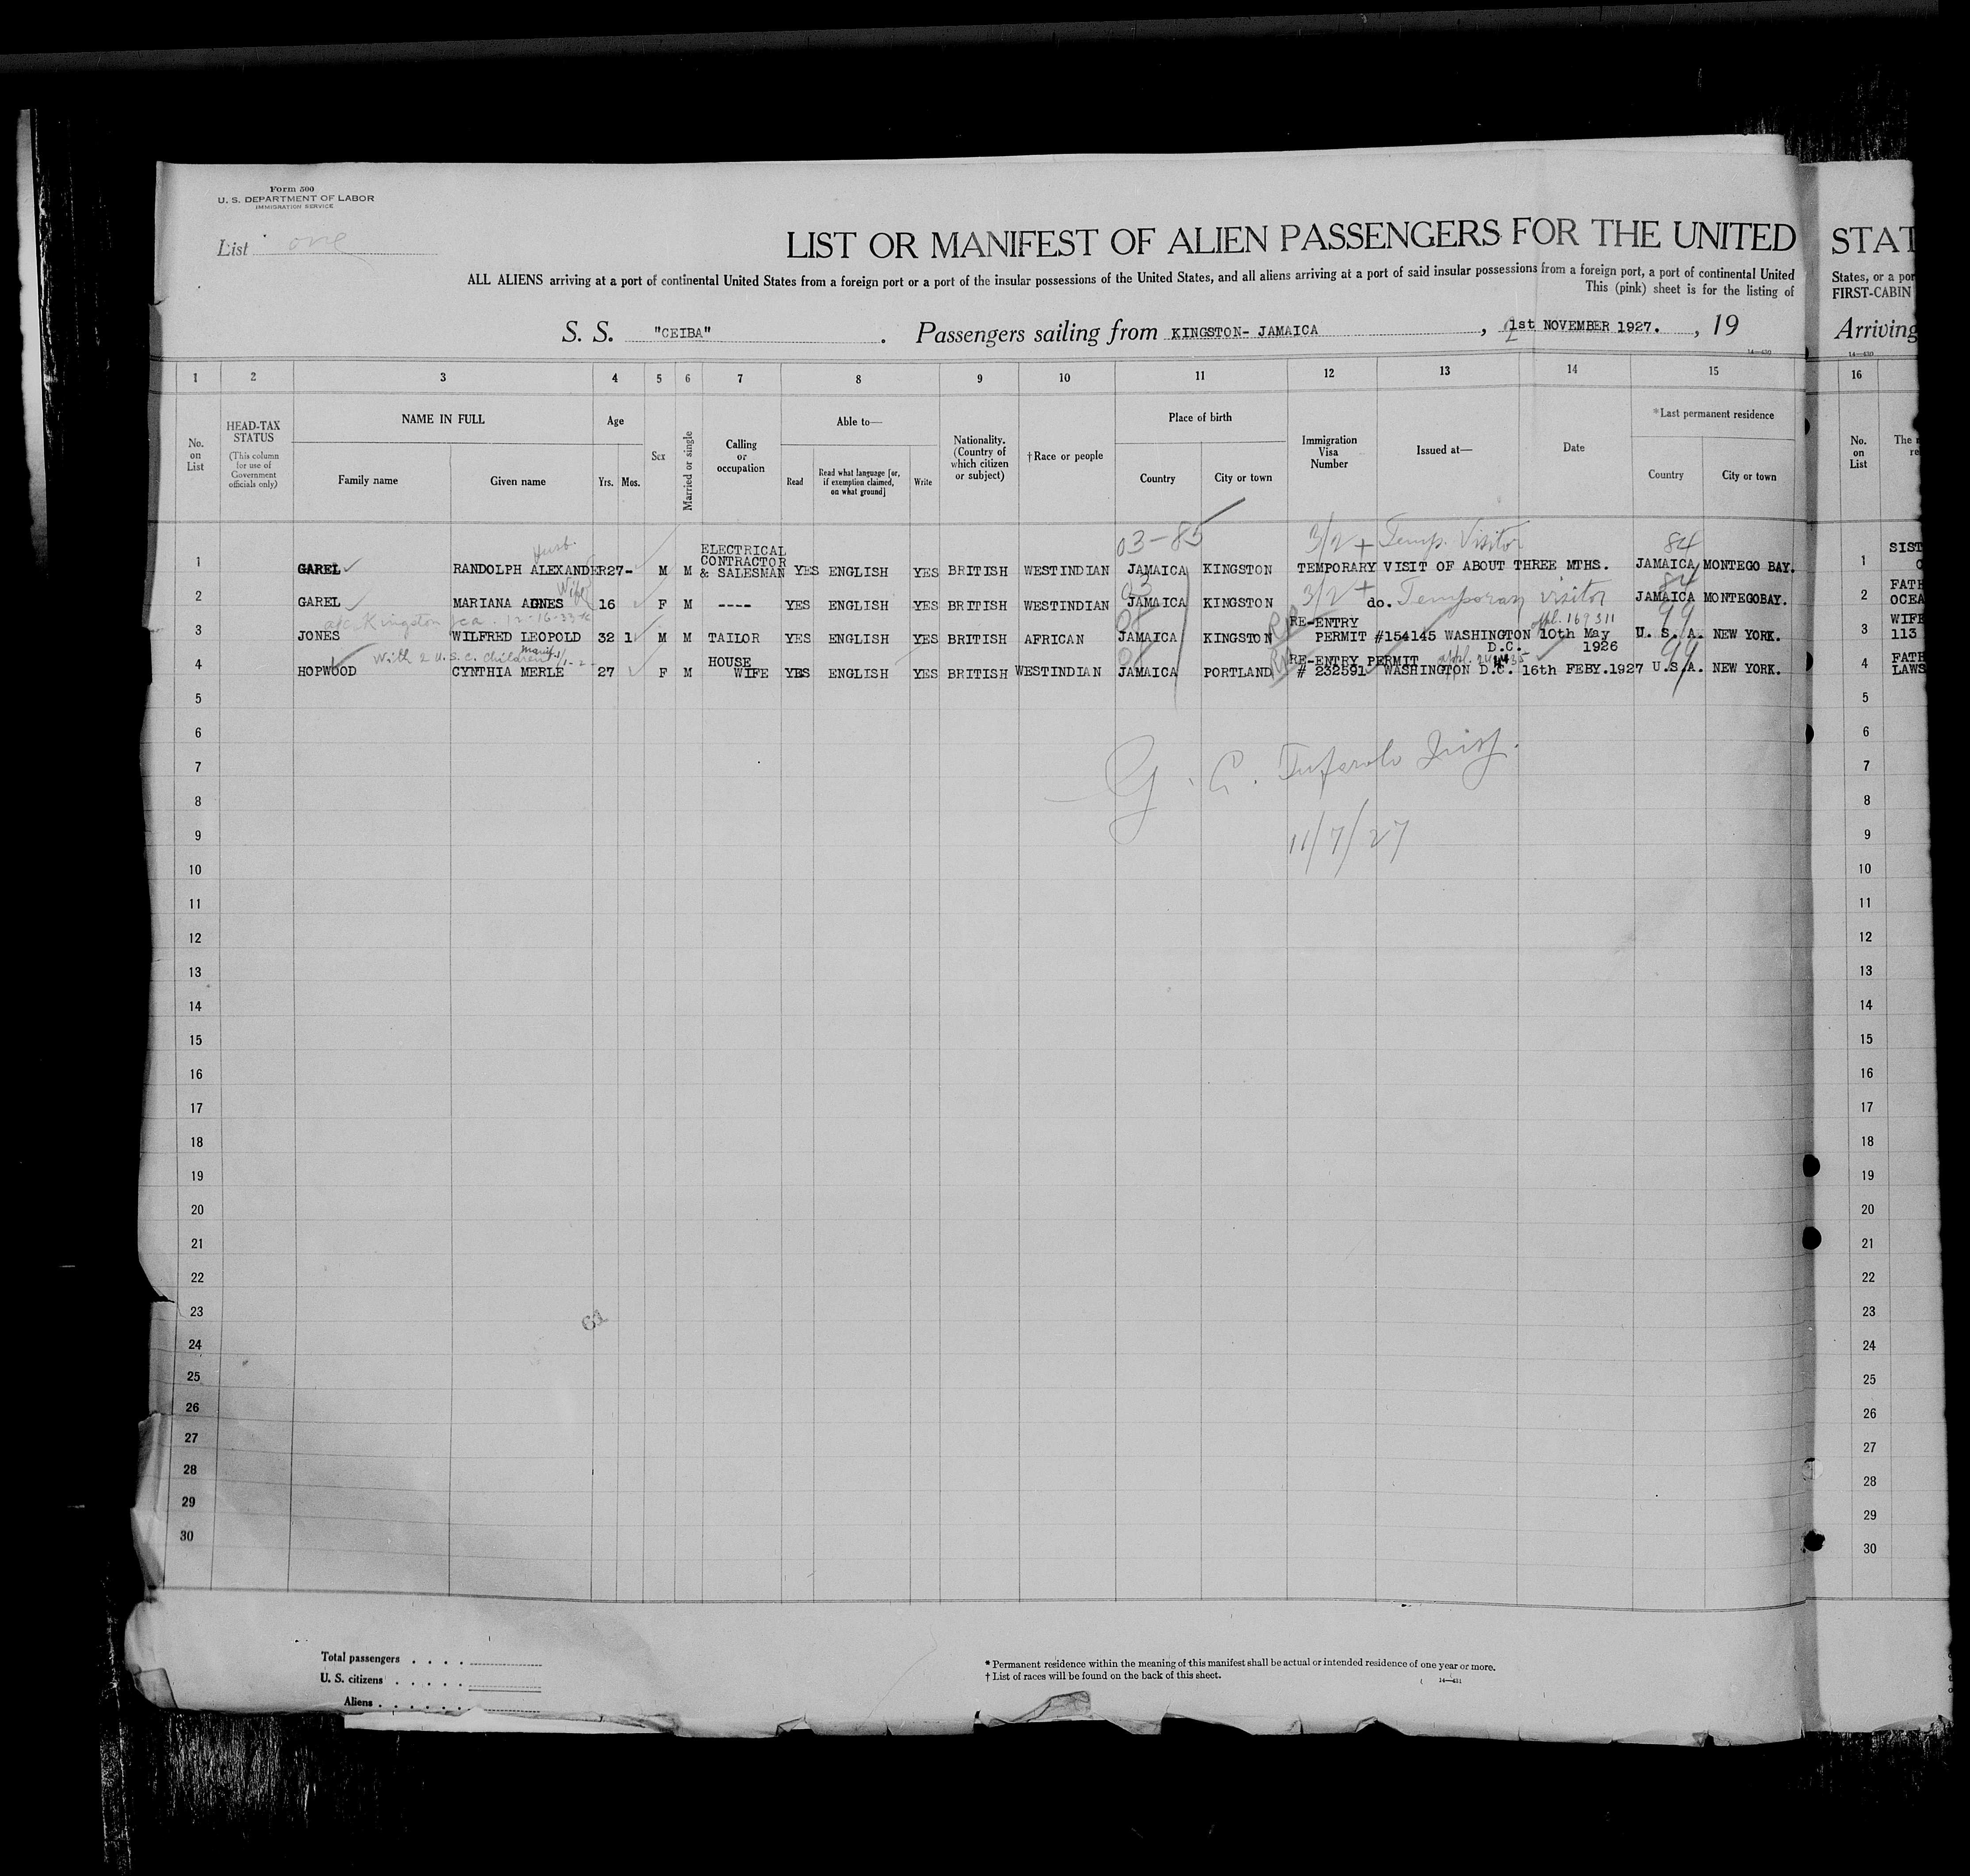 Form 500
U. S. DEPARTMENT OF LABOR
IMMIGRATION SERVICE
List one
LIST OR MANIFEST OF ALIEN PASSENGERS FOR THE UNITED
ALL ALIENS arriving at a port of continental United States from a foreign port or a port of the insular possessions of the United States, and all aliens arriving at a port of said insular possessions from a foreign port, a port of continental United
This (pink) sheet is for the listing of
S. S. "CEIBA" . Passengers sailing from KINGSTON- JAMAICA , 1st NOVEMBER 1927. , 19
14—430
1 2 3 4 5 6 7 8 9 10 11 12 13 14 15
No. on List
HEAD-TAX STATUS
(This column for use of Government officials only)
NAME IN FULL
Family name Given name
Age
Yrs. Mos.
Sex
Married or single
Calling or occupation
Able to—
Read Read what language [or, if exemption claimed, on what ground] Write
Nationality. (Country of which citizen or subject)
†Race or people
Place of birth
Country City or town
Immigration Visa Number
Issued at—
Date
*Last permanent residence
Country City or town
03-85 3/2 + Temp. Visitor 84
Husb.
1 GAREL RANDOLPH ALEXANDER 27 - M M ELECTRICAL CONTRACTOR & SALESMAN YES ENGLISH YES BRITISH WESTINDIAN JAMAICA KINGSTON TEMPORARY VISIT OF ABOUT THREE MTHS. JAMAICA MONTEGO BAY.
Wife 03 3/2 + Temporary visitor 84
2 GAREL MARIANA AGNES 16 F M ---- YES ENGLISH YES BRITISH WESTINDIAN JAMAICA KINGSTON do. JAMAICA MONTEGOBAY.
Kingston Jca. 12-16-33 appl. 169311 99
3 JONES WILFRED LEOPOLD 32 1 M M TAILOR YES ENGLISH YES BRITISH AFRICAN JAMAICA KINGSTON RE-ENTRY PERMIT #154145 WASHINGTON D.C. 10th May 1926 U. S. A. NEW YORK.
With 2 U.S.C. children 99
4 HOPWOOD CYNTHIA MERLE 27 F M HOUSE WIFE YES ENGLISH YES BRITISH WESTINDIAN JAMAICA PORTLAND RE-ENTRY PERMIT # 232591 WASHINGTON D.C. 16th FEBY.1927 U.S.A. NEW YORK.
5
6
7
8
9
10
11
12
13
14
15
16
17
18
19
20
21
22
23
24
25
26
27
28
29
30
Insp.
11/7/27
Total passengers
U. S. citizens
Aliens
* Permanent residence within the meaning of this manifest shall be actual or intended residence of one year or more.
† List of races will be found on the back of this sheet.
14—431
STAT
States, or a por
FIRST-CABIN
Arriving
14—430
16
No. on List
The
1 SIST
2 FATH
OCEA
3 WIFE
113
4 FATH
LAWS
5
6
7
8
9
10
11
12
13
14
15
16
17
18
19
20
21
22
23
24
25
26
27
28
29
30